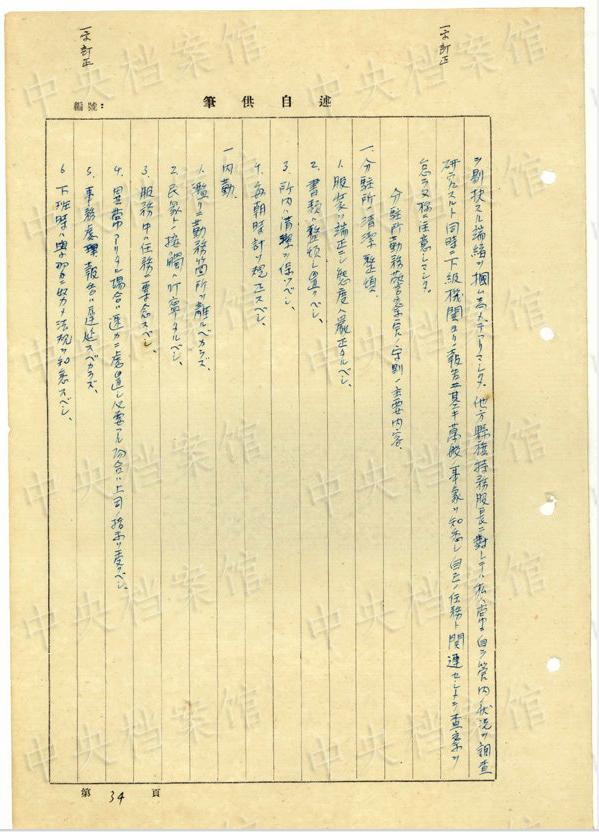 一字訂正
一字訂正
編號:
筆供自述
ヲ剔抉スル端緒ヲ掴ム為メデアリマシタ。地方縣旗特務股長ニ對シテハ私ハ常ニ自ラ管内ノ状況ヲ調査
研究スルト同時ニ下級機関ヨリノ報告ニ基キ萬般ノ事象ヲ知悉シ自己ノ任務ト関連セシメテ査察ヲ
怠ラヌ様ニ注意シマシタ。
分駐所勤務警察官ノ守則ノ主要内容
一、分駐所ノ清潔整頓、
1. 服装ハ端正ニシ態度ハ厳正タルベシ、
2. 書類ハ整頓シ置クベシ、
3. 所内ハ清潔ヲ保ツベシ、
4. 毎朝時計ヲ規正スベシ、
一、内勤、
1. 濫リニ勤務箇所ヲ離ルベカラズ、
2. 民衆トノ接觸ハ叮寧タルベシ、
3. 服務中ハ任務ニ専念スベシ、
4. 異常アリタル場合ハ速カニ處置シ必要アル場合ハ上司ノ指示ヲ受クベシ、
5. 事務處理報告ハ遅延スベカラズ、
6. 下班時ハ
法規ヲ知悉スベシ、
第34頁
中央档案馆